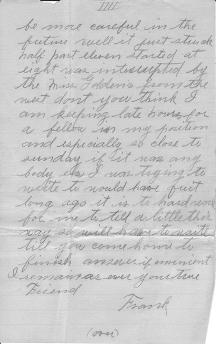 IIII
be more careful in the
future well it just struck
half past eleven started at
eight was interrupted by
the Miss from the
next dont you think I
am keeping late hours for
a fellow in my position
and especially so close to
sunday if it was any
body else I was trying to
write to would have quit
long ago it is to hard work
for me to tell a little this
way so will have to wait
till you come home to
finish answer if convenient
I remain as ever your true
Friend
Frank
(over)